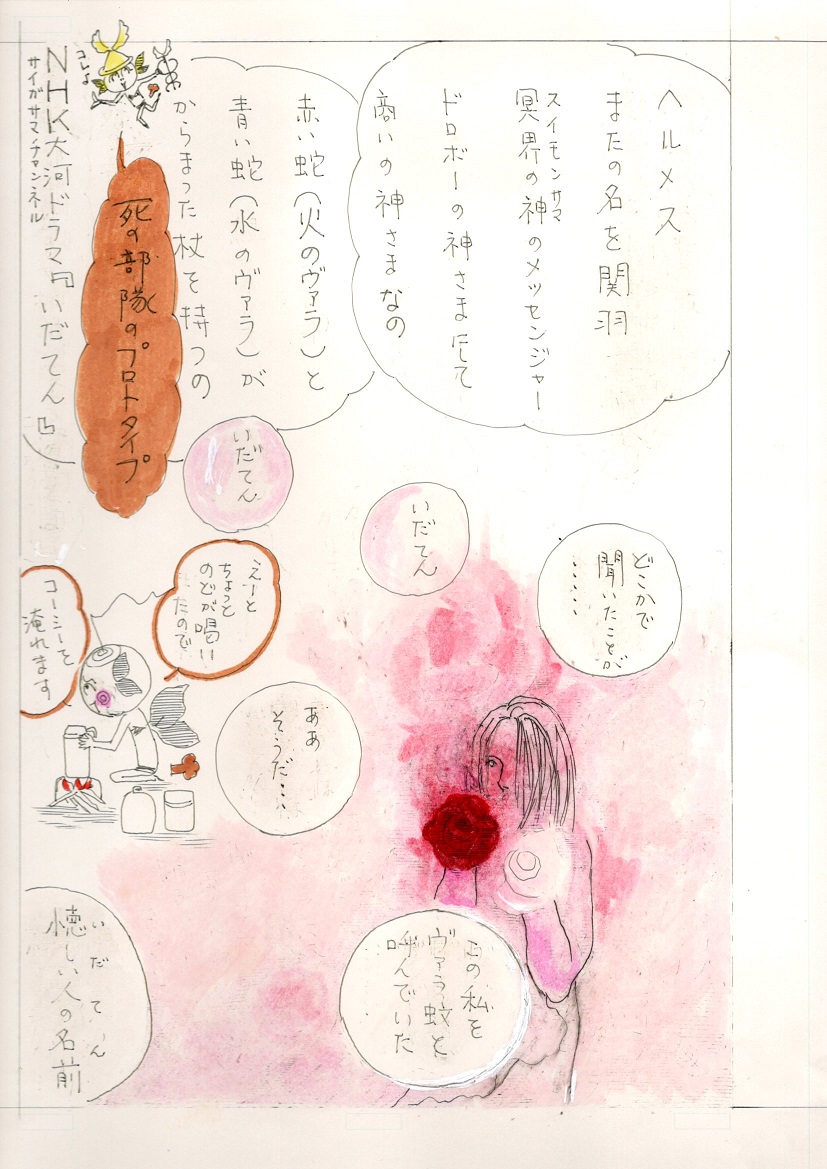 ヘルメス
またの名を関羽
スイモンサマ
冥界の神のメッセンジャー
ドロボーの神さまにして
商いの神さまなの
赤い蛇(火のヴァラ)と
青い蛇(水のヴァラ)が
からまった杖を持つの
死の部隊のプロトタイプ
コレよ
NHK大河ドラマ『いだてん』
サイガサマチャンネル
どこかで
聞いたことが
……
いだてん
いだてん
えーと
ちょっと
のどが喝い
たので
コーミーを
淹れます
ああ
そうだ…
この私を
ヴァラ蚊と
呼んでいた
いだてん
しい人の名前